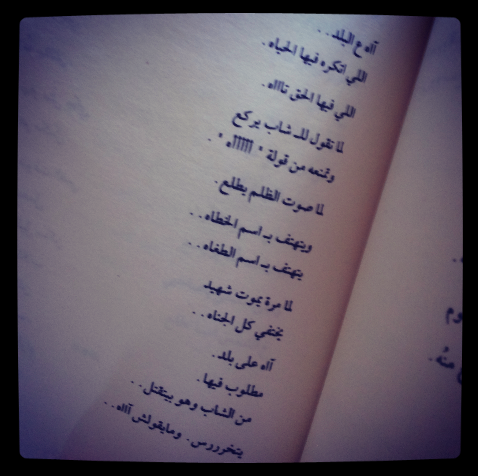 آآه ع البلد..
اللي اتكره فيها الحياه.
اللي فيها الحق تااااه.
لما تقول للـ شاب يركع
وتمنعه من قولة " آآآآآه ".
لما صوت الظلم يطلع.
ويتهتف بـ اسم الخطاه..
يتهتف بـ اسم الطغاه..
لما مرة يموت شهيد
يختفي كل الجناه..
آآه على بلد.
مطلوب فيها.
من الشاب وهو بيتقتل..
يتخرررس. ومايقولش آآآه..
وم
منهُ.